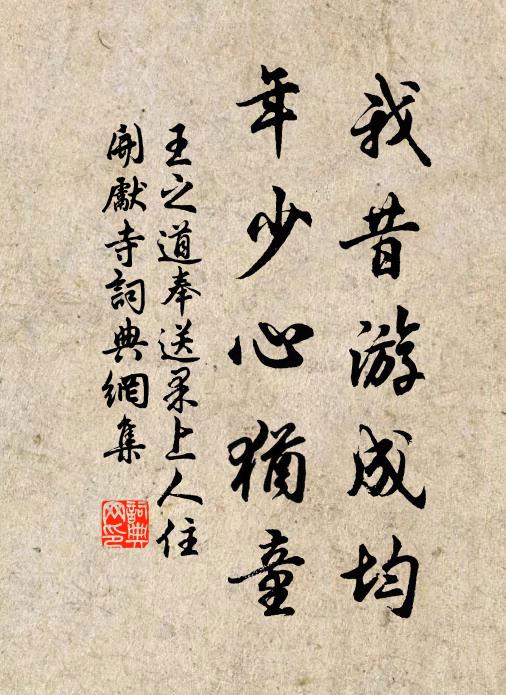 我昔游成均
年少心犹童
王之道奉送杲上人住
開獻寺詞典網集
詞典
网印